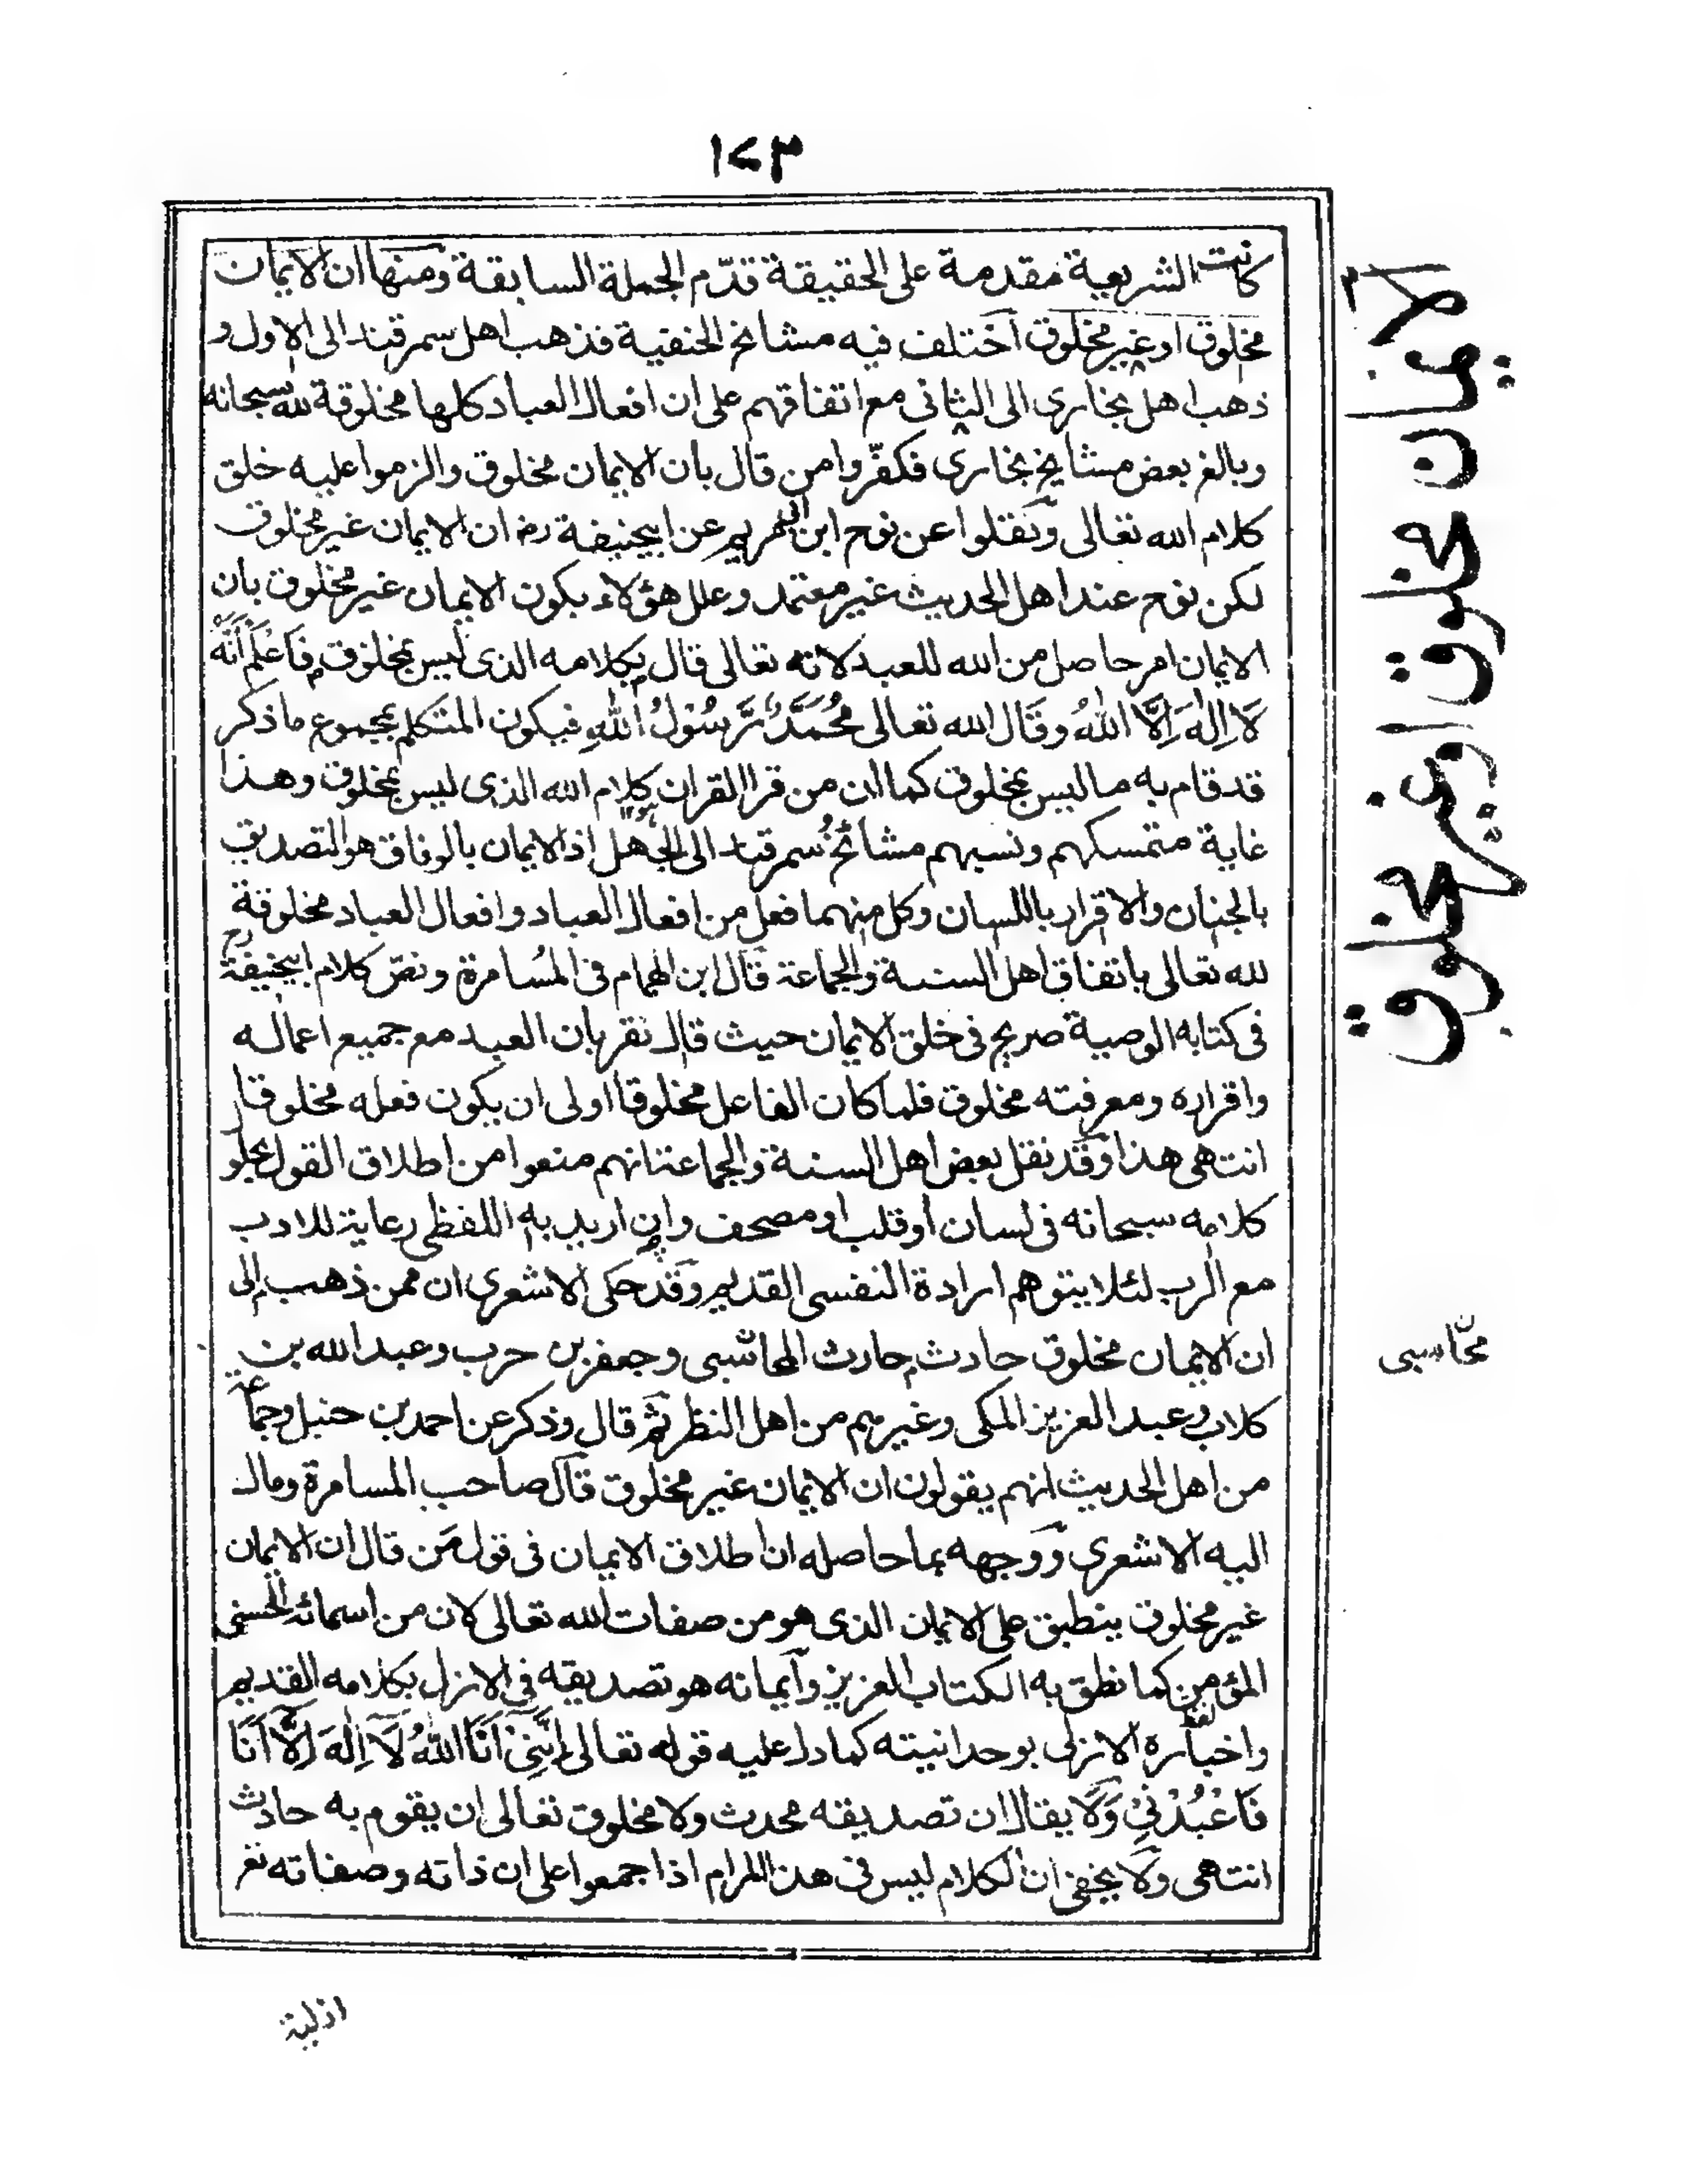 ١٧٣
كانت الشريعة مقدمة على الحقيقة قدّم الجملة السابقة ومنها ان الايمان
مخلوق او غير مخلوق اختلف فيه مشائخ الحنفية فذهب اهل سمرقند الى الاول و
ذهب اهل بخارى الى الثانى مع اتفاقهم على ان افعال العباد كلها مخلوقة لله سبحانه
وبالغ بعض مشايخ بخارى فكفّروا من قال بان الايمان مخلوق والزموا عليه خلق
كلام الله تعالى ونقلوا عن نوح ابن ابى مريم عن ابيحنيفة رض ان الايمان غير مخلوق
لكن نوح عند اهل الحديث غير معتمد وعلل هؤلاء بكون الايمان غير مخلوق بان
الايمان امر حاصل من الله للعبد لانه تعالى قال بكلامه الذى ليس بمخلوق فَاعْلَمْ أَنَّهٗ
لَا اِلٰهَ اِلَّا اللّٰهُ وقَال الله تعالى مُحَمَّدٌ رَّسُوْلُ اللّٰهِ فيكون المتكلم بمجموع ما ذكر
قد قام به ما ليس بمخلوق كما ان من قرا القران كلام الله الذى ليس بمخلوق وهذا
غاية متمسكهم ونسبهم مشائخ سمرقند الى الجهل اذ الايمان بالوفاق هو التصديق
بالجنان والاقرار باللسان وكل منهما فعل من افعال العباد وافعال العباد مخلوقة
لله تعالى باتفاق اهل السنة والجماعة قال ابن الهمام فى المُسامرة ونصّ كلام ابيحنيفة رح
فى كتابه الوصية صريح فى خلق الايمان حيث قال نقر بان العبد مع جميع اعماله
واقراره ومعرفته مخلوق فلما كان الفاعل مخلوقا اولى ان يكون فعله مخلوقا
انتهى هذا وقد نقل بعض اهل السنة والجماعة انهم منعوا من اطلاق القول بحلو
كلامه سبحانه فى لسان او قلب او مصحف وان اريد به اللفظى رعاية للادب
مع الرب لئلا يتوهم ارادة النفسى القديم وقد حكى الاشعرى ان ممن ذهب الى
ان الايمان مخلوق حادث حارث المحاسبى وجعفر بن حرب وعبد الله بن
كلاب وعبد العزيز المكى وغيرهم من اهل النظر ثم قال وذكر عن احمد بن حنبل وجماعة
من اهل الحديث انهم يقولون ان الايمان غير مخلوق قال صاحب المسامرة ومال
اليه الاشعرى ووجهه بما حاصله ان اطلاق الايمان فى قول مَن قال ان الايمان
غير مخلوق ينطبق على الايمان الذى هو من صفات الله تعالى لان من اسمائه الحسنى
المؤمن كما نطق به الكتاب العزيز وايمانه هو تصديقه فى الازل بكلامه القديم
واخباره الازلى بوحدانيته كما دل عليه قوله تعالى اِنَّنِىْ اَنَا اللّٰهُ لَآ اِلٰهَ اِلَّآ اَنَا
فَاعْبُدْنِىْ وَلَا يقال ان تصديقه محدث ولا مخلوق تعالى ان يقوم به حادث
انتهى ولا يخفى ان الكلام ليس فى هذا المرام اذ اجمعوا على ان ذاته وصفاته تع
ازلية
الايمان مخلوق او غير مخلوق
محّاسبى